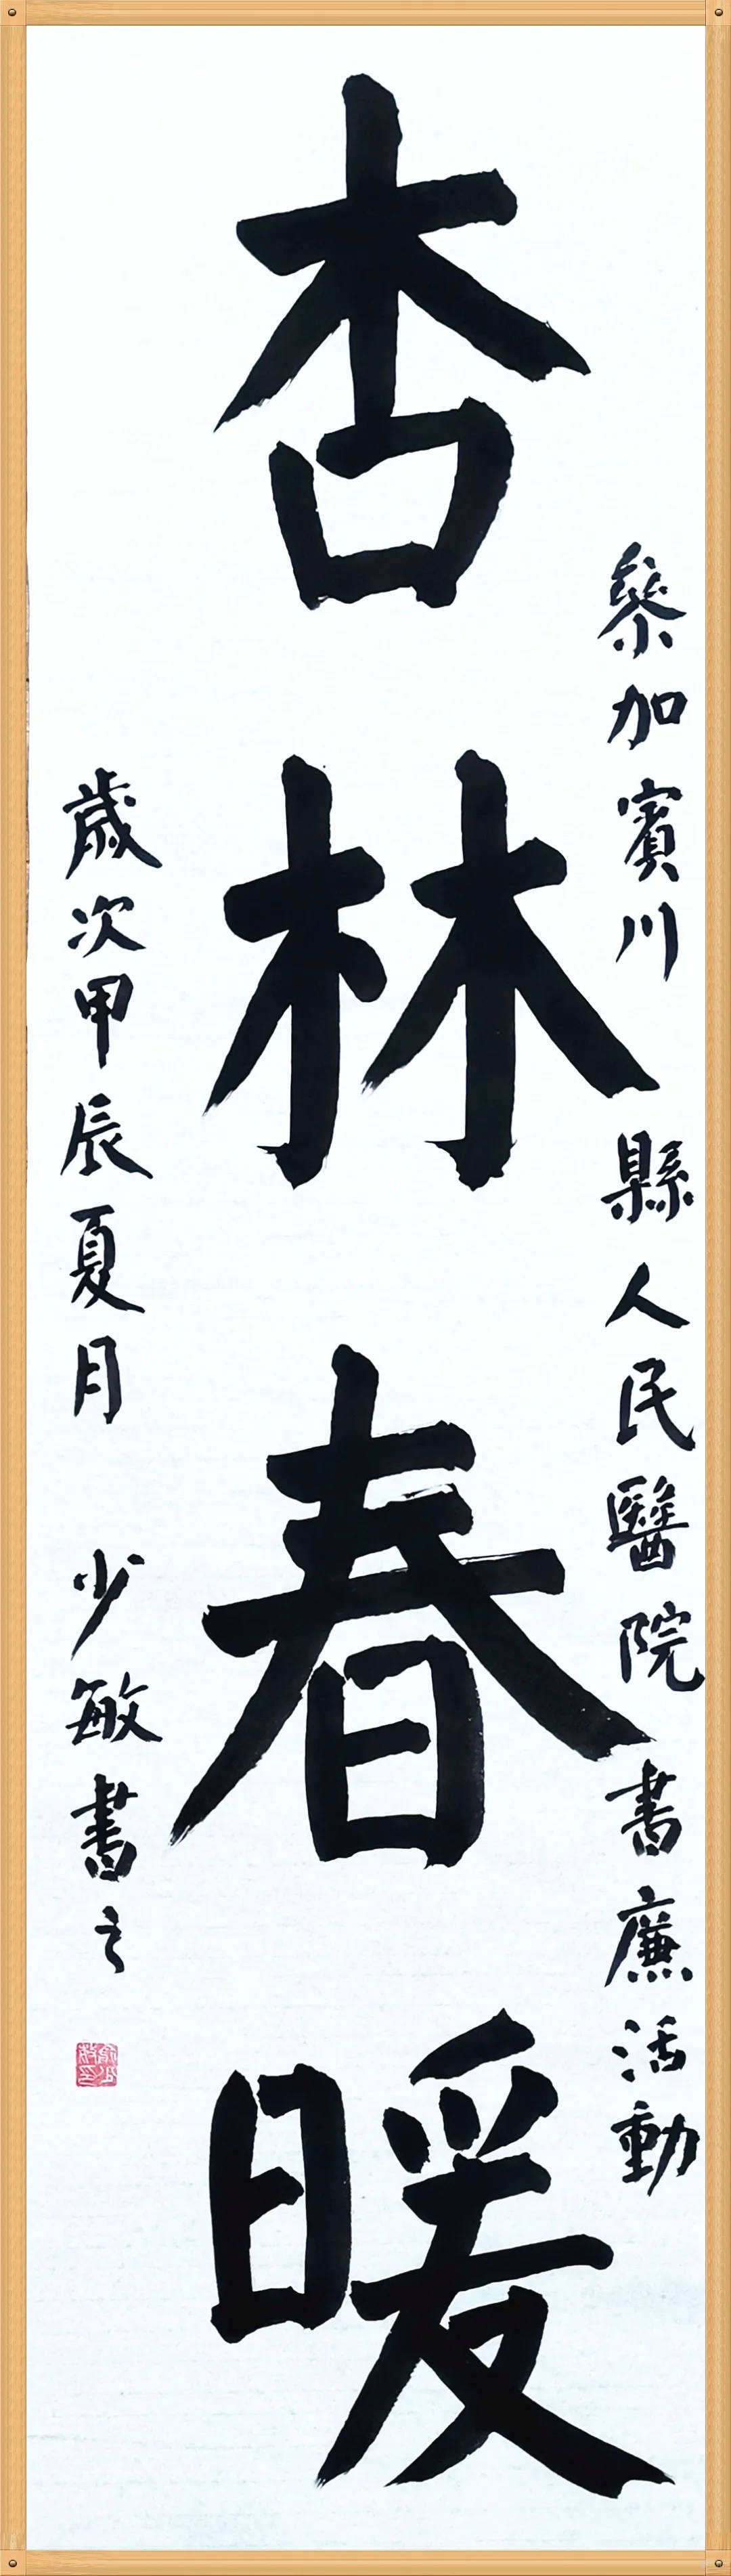 參加賓川縣人民醫院書廉活動
杏林春暖
歲次甲辰夏月 少敏書之